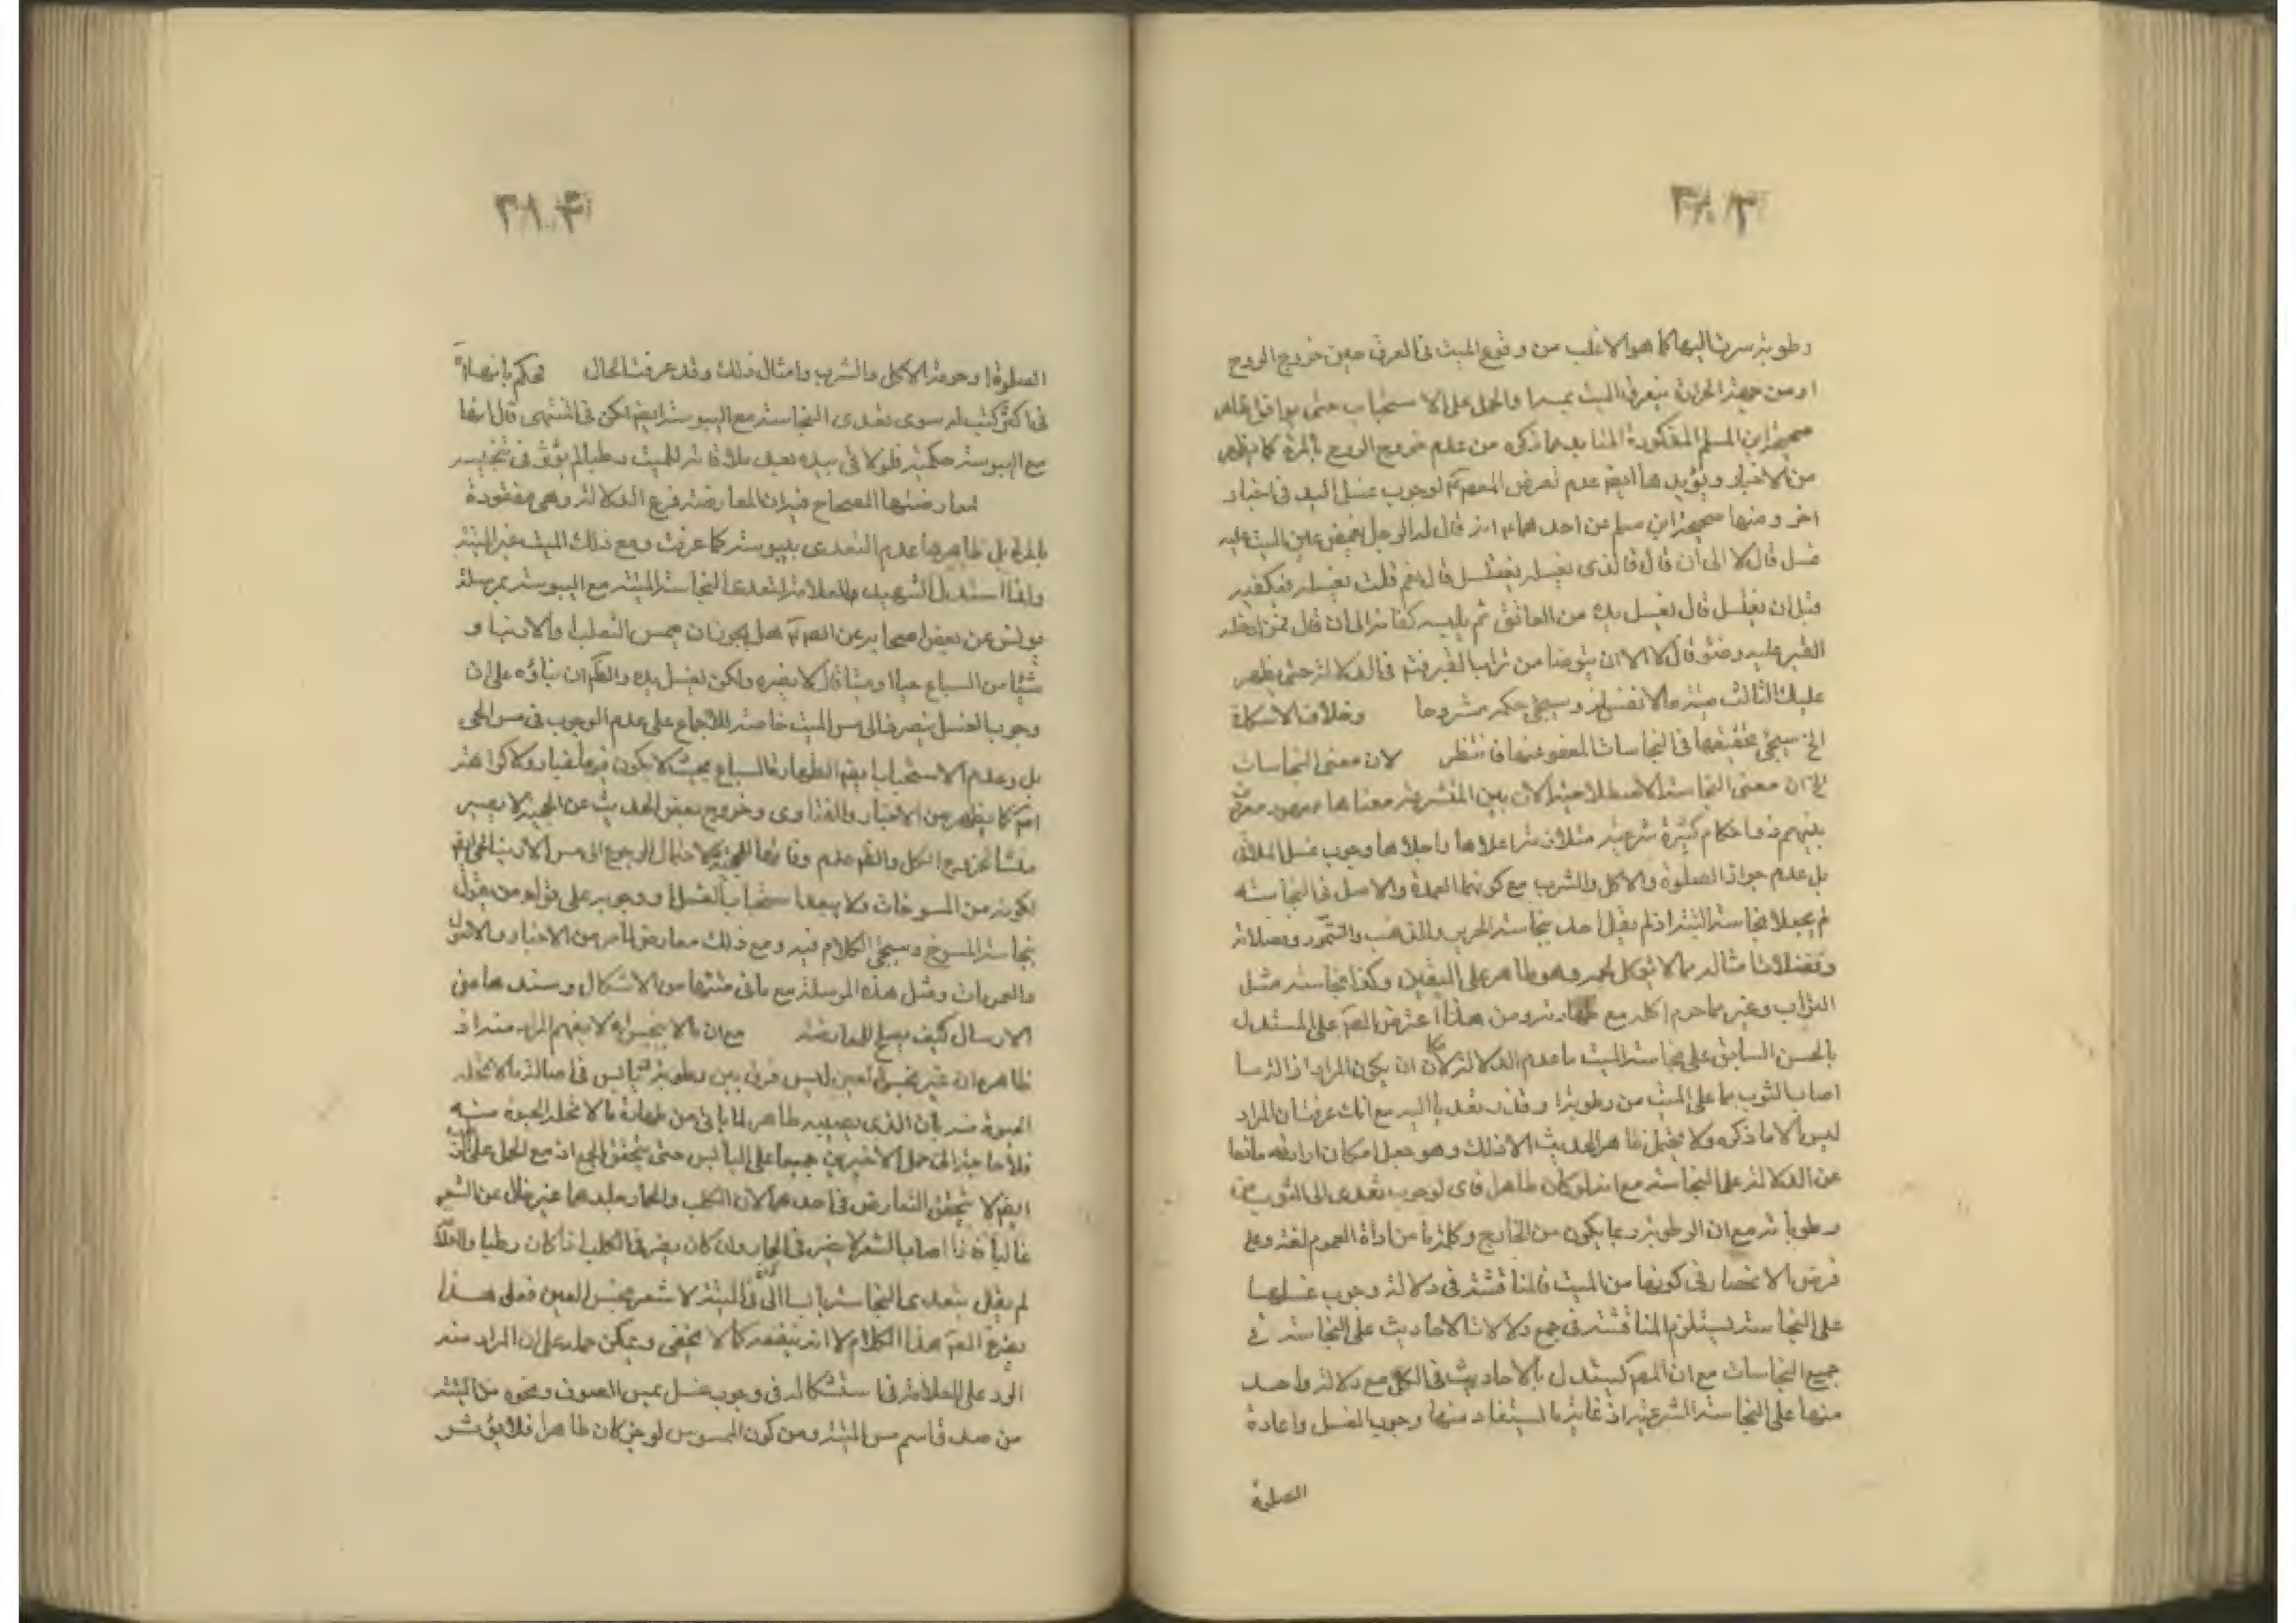 رطوبة سرت اليها كما هو الاغلب من وقوع الميت في العرق حين خروج الروح
او من جهة الحرارة يتعرق الميت بعدها والحمل على الاستحباب حتى يوافق ظاهر
صحيحة ابن المسلم المذكورة المنا بما ذكره من عدم خروج الروح بالمرة كما يظهر
من الاخبار ويؤيدها ايضا عدم تعرض المعصوم لوجوب غسل اليد في اخبار
اخر ومنها صحيحة ابن مسلم عن احدهما انه قال له الرجل يغمض عين الميت عليه
غسل قال لا الى أن قال فالذي يغسله يغتسل قال نعم قلت يغسله فيكفنه
قبل ان يغتسل قال يغسل يده من العاتق ثم يلبسه كفانه الى ان قال فمن ادخله
القبر عليه وضوء قال لا الا ان يتوضا من تراب القبر في الدلالة حتى يظهر
عليك الثالث ميتة مالا نفس له وسيجئ حكمه مشروحا وخلاف الاسكافي
الخ سيجئ تحقيقها في النجاسات المعفو عنها فانتظر لان معنى النجاسات
الخ ان معنى النجاسة الاصطلاحية الان بين المتشرعة معناها معهود معرف
بينهم ذو احكام كثيرة شرعية مثلا من اعلاها واجلاها وجوب غسل الملاقي
بل عدم جواز الصلوة والاكل والشرب مع كونهما العمدة والاصل في النجاسة
لم يجعلا نجاسة البتة اذ لم يقل احد بنجاسة الحرير والذهب والسمور وفضلاته
وفضلات امثاله مما لا يؤكل لحمه وهو طاهر على اليقين وكذا نجاسة مثل
التراب وغيره مما حرم اكله مع طهارته ومن هذا اعترض المص على المستدل
بالحسن السابق على نجاسة الميت بعدم الدلالة لامكان ان يكون المراد ازالة ما
اصاب الثوب مما على الميت من رطوبة او قذر تعديا اليه مع انك عرفت ان المراد
ليس الا ما ذكره ولا يحتمل ظاهر الحديث الا ذلك وهو جعل امكان ارادته مانعا
عن الدلالة على النجاسة مع انه لو كان طاهرا فاي لوجوب تعدى الى الثوب من
رطوباته مع ان الرطوبة ربما يكون من الخارج وكلمة ما من اداة العموم لغة وعلى
فرض الانحصار في كونها من الميت فالمناقشة في دلالة وجوب غسلها
على النجاسة يستلزم المناقشة في جمع دلالات الاحاديث على النجاسة في
جميع النجاسات مع ان المص يستدل بالاحاديث في الكل مع دلالة واحد
منها على النجاسة الشرعية اذ غاية ما يستفاد منها وجوب الغسل واعادة
الصلوة
الصلوة او حرمة الاكل والشرب وامثال ذلك وقد عرفت الحال تحكم بانها
في اكثر كتبه سوى تعدى النجاسة مع اليبوسة ايضا لكن في المنتهى قال انها
مع اليبوسة حكمية فلو لاقى ببدنه بعد ملاقاته للميت رطبا لم يؤثر في تنجيسه
لمعارضتها الصحاح فيه ان المعارضة فرع الدلالة وهي مفقودة
بالمرة بل ظاهرها عدم التعدى بيبوسة كما عرفت ومع ذلك الميت غير الميتة
ولذا استدل الشهيد والعلامة لتعدى النجاسة الميتة مع اليبوسة بمرسلة
يونس عن بعض اصحابه عن الص هل يجوز ان يمس الثعلب والارنب او
شيئا من السباع حيا او ميتا قال لا يضره ولكن يغسل يده والظاهر ان بناؤه على ان
وجوب الغسل ينصرف الى مس الميت خاصة للاجماع على عدم الوجوب في مس الحي
بل وعدم الاستحباب ايضا لطهارة السباع بحيث لا يكون فيها غبار ولا كراهة
ايضا كما يظهر من الاخبار والفتاوى وخروج بعض الحديث عن الحجية لا يصير
منشأ لخروج الكل والظاهر عدم
بكونه من المسوخات ولا يبعد استحباب الغسل او وجوبه على قوله من يقول
بنجاسة المسوخ وسيجئ الكلام فيه ومع ذلك معارض لما مر من الاخبار والاصول
والعمومات ومثل هذه المرسلة مع ما في متنها من الاشكال وسندها من
الارسال كيف يصلح للمعارضة مع ان مالا ينجس انه لا يفهم المراد منه اذ
ظاهره ان غير نجس العين ليس فرق بين رطوبة ويابس في اصالة مالا تحله
الحيوة منه بان الذى يصيبه طاهر لما ياتي من طهارة مالا تحله الحيوة منه
فلا حاجة الى حمل الاخبارين جميعا على اليابس حتى يتحقق الجمع اذ مع الحمل على الرطب
ايضا لا يتحقق التعارض في احدهما لان الكلب والحمار جلدهما غير خال عن الشعر
غالبا فاذا اصاب الشعر لا يضر في الحمار وان كان يضر في الكلب اذا كان رطبا والعلامة
لم يقل بتعدى النجاسة يابسا الا في الميتة لا شعر نجس العين فعلى هذا
يضر المص هذا الكلام لا انه ينفعه كما لا يخفى ويمكن حمله على ان المراد منه
الرد على العلامة في استشكاله في وجوب غسل بمس الصوف ونحوه من الميتة
من صدق اسم مس الميتة ومن كون الممسوس لو جز كان طاهرا فلا يؤثر